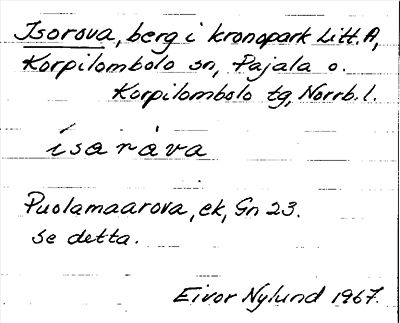 Isorova, berg i kronopark Litt. A,
Korpilombolo sn, Pajala o.
Korpilombolo tg, Norrb. l.
ísaràva
Puolamaarova, ek, Gn 23.
Se detta.
Eivor Nylund 1967.